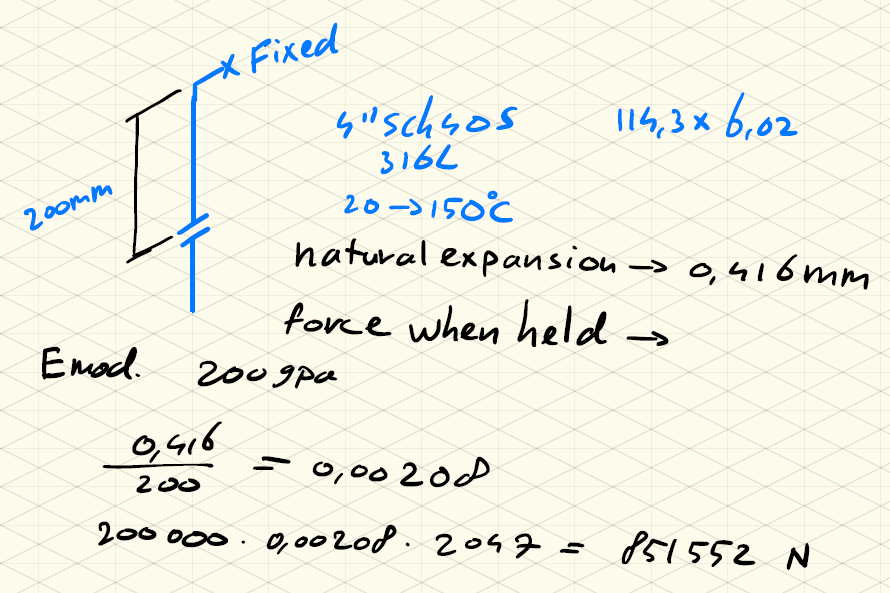 x Fixed
4" sch 40S 114,3 x 6,02
316L
20 → 150°C
200mm
natural expansion → 0,416mm
force when held →
Emod. 200gpa
0,416
200
= 0,00208
200 000 . 0,00208 . 2047 = 851552 N